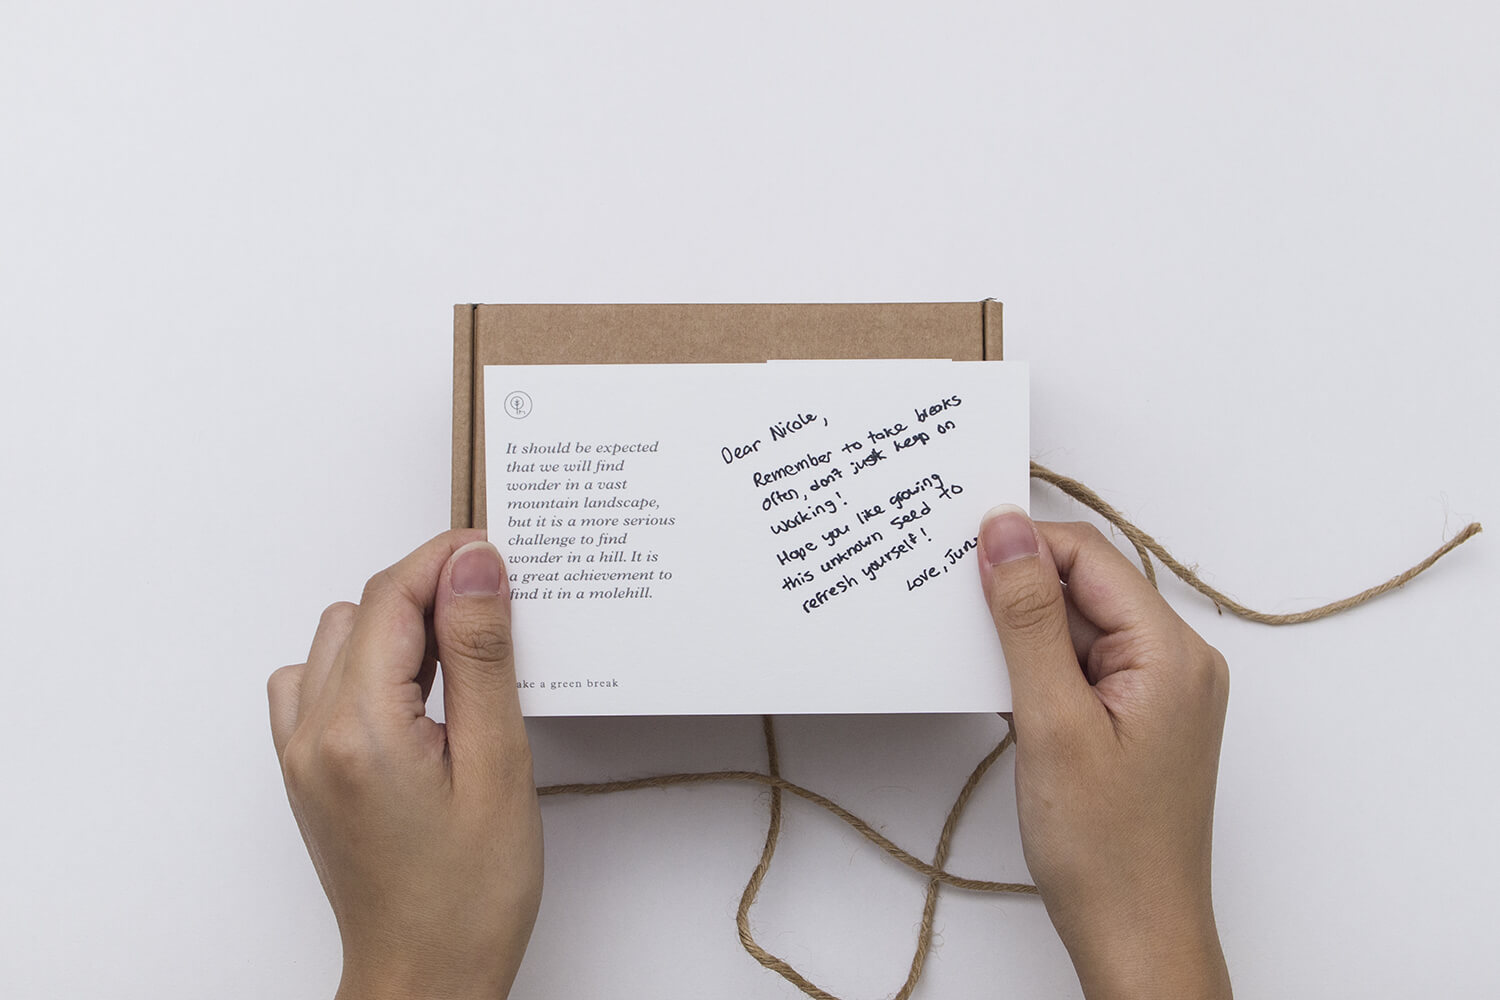 It should be expected
that we will find
wonder in a vast
mountain landscape,
but it is a more serious
challenge to find
wonder in a hill. It is
a great achievement to
find it in a molehill.
a green break
Dear Nicole,
Remember to take breaks
often, don't just keep on
working!
Hope you like growing
this unknown seed to
refresh yourself!
Love, June